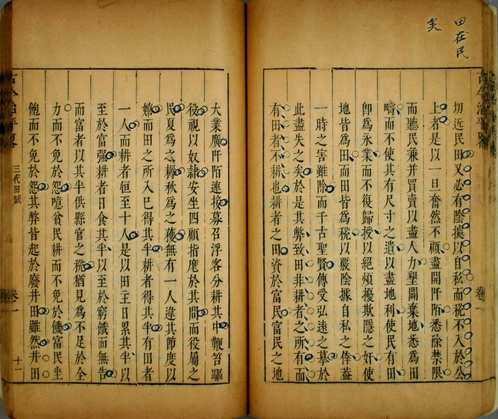 田在民
矣
切近民田又必有陰據以自私而稅不入於公
上者是以一旦奮然不顧盡開阡陌悉除禁限
而聽民兼并買賣以盡人力墾開棄地悉為田
疇而不使其有尺寸之遺以盡地利使民有田
卽為永業而不復歸授以絕煩擾欺隱之奸使
地皆為田而田皆為稅以覈陰據自私之倖蓋
一時之害雖除而千古聖賢傳受弘遠之摹於
此盡失之矣於是其弊致田非耕者之所有而
有田者不耕也耕者之田資於富民富民之地
大業廣阡陌連接募召浮客分耕其中鞭笞驅
役視以奴隸安坐四顧指麾於其間而役屬之
民夏為之耨秋為之穫無有一人違其節度以
嬉而田之所入已得其半耕者得其半有田者
一人而耕者恒至十人是以田主日累其半以
至於富強耕者日食其半以至於窮餓而無告
而富者以其半供縣官之徵猶見為不足於全
力而不免於怨噫貧民耕而不免於饑富民坐
飽而不免於怨其弊皆起於廢井田雖然井田
古今治平畧 三代田賦 卷一 十一